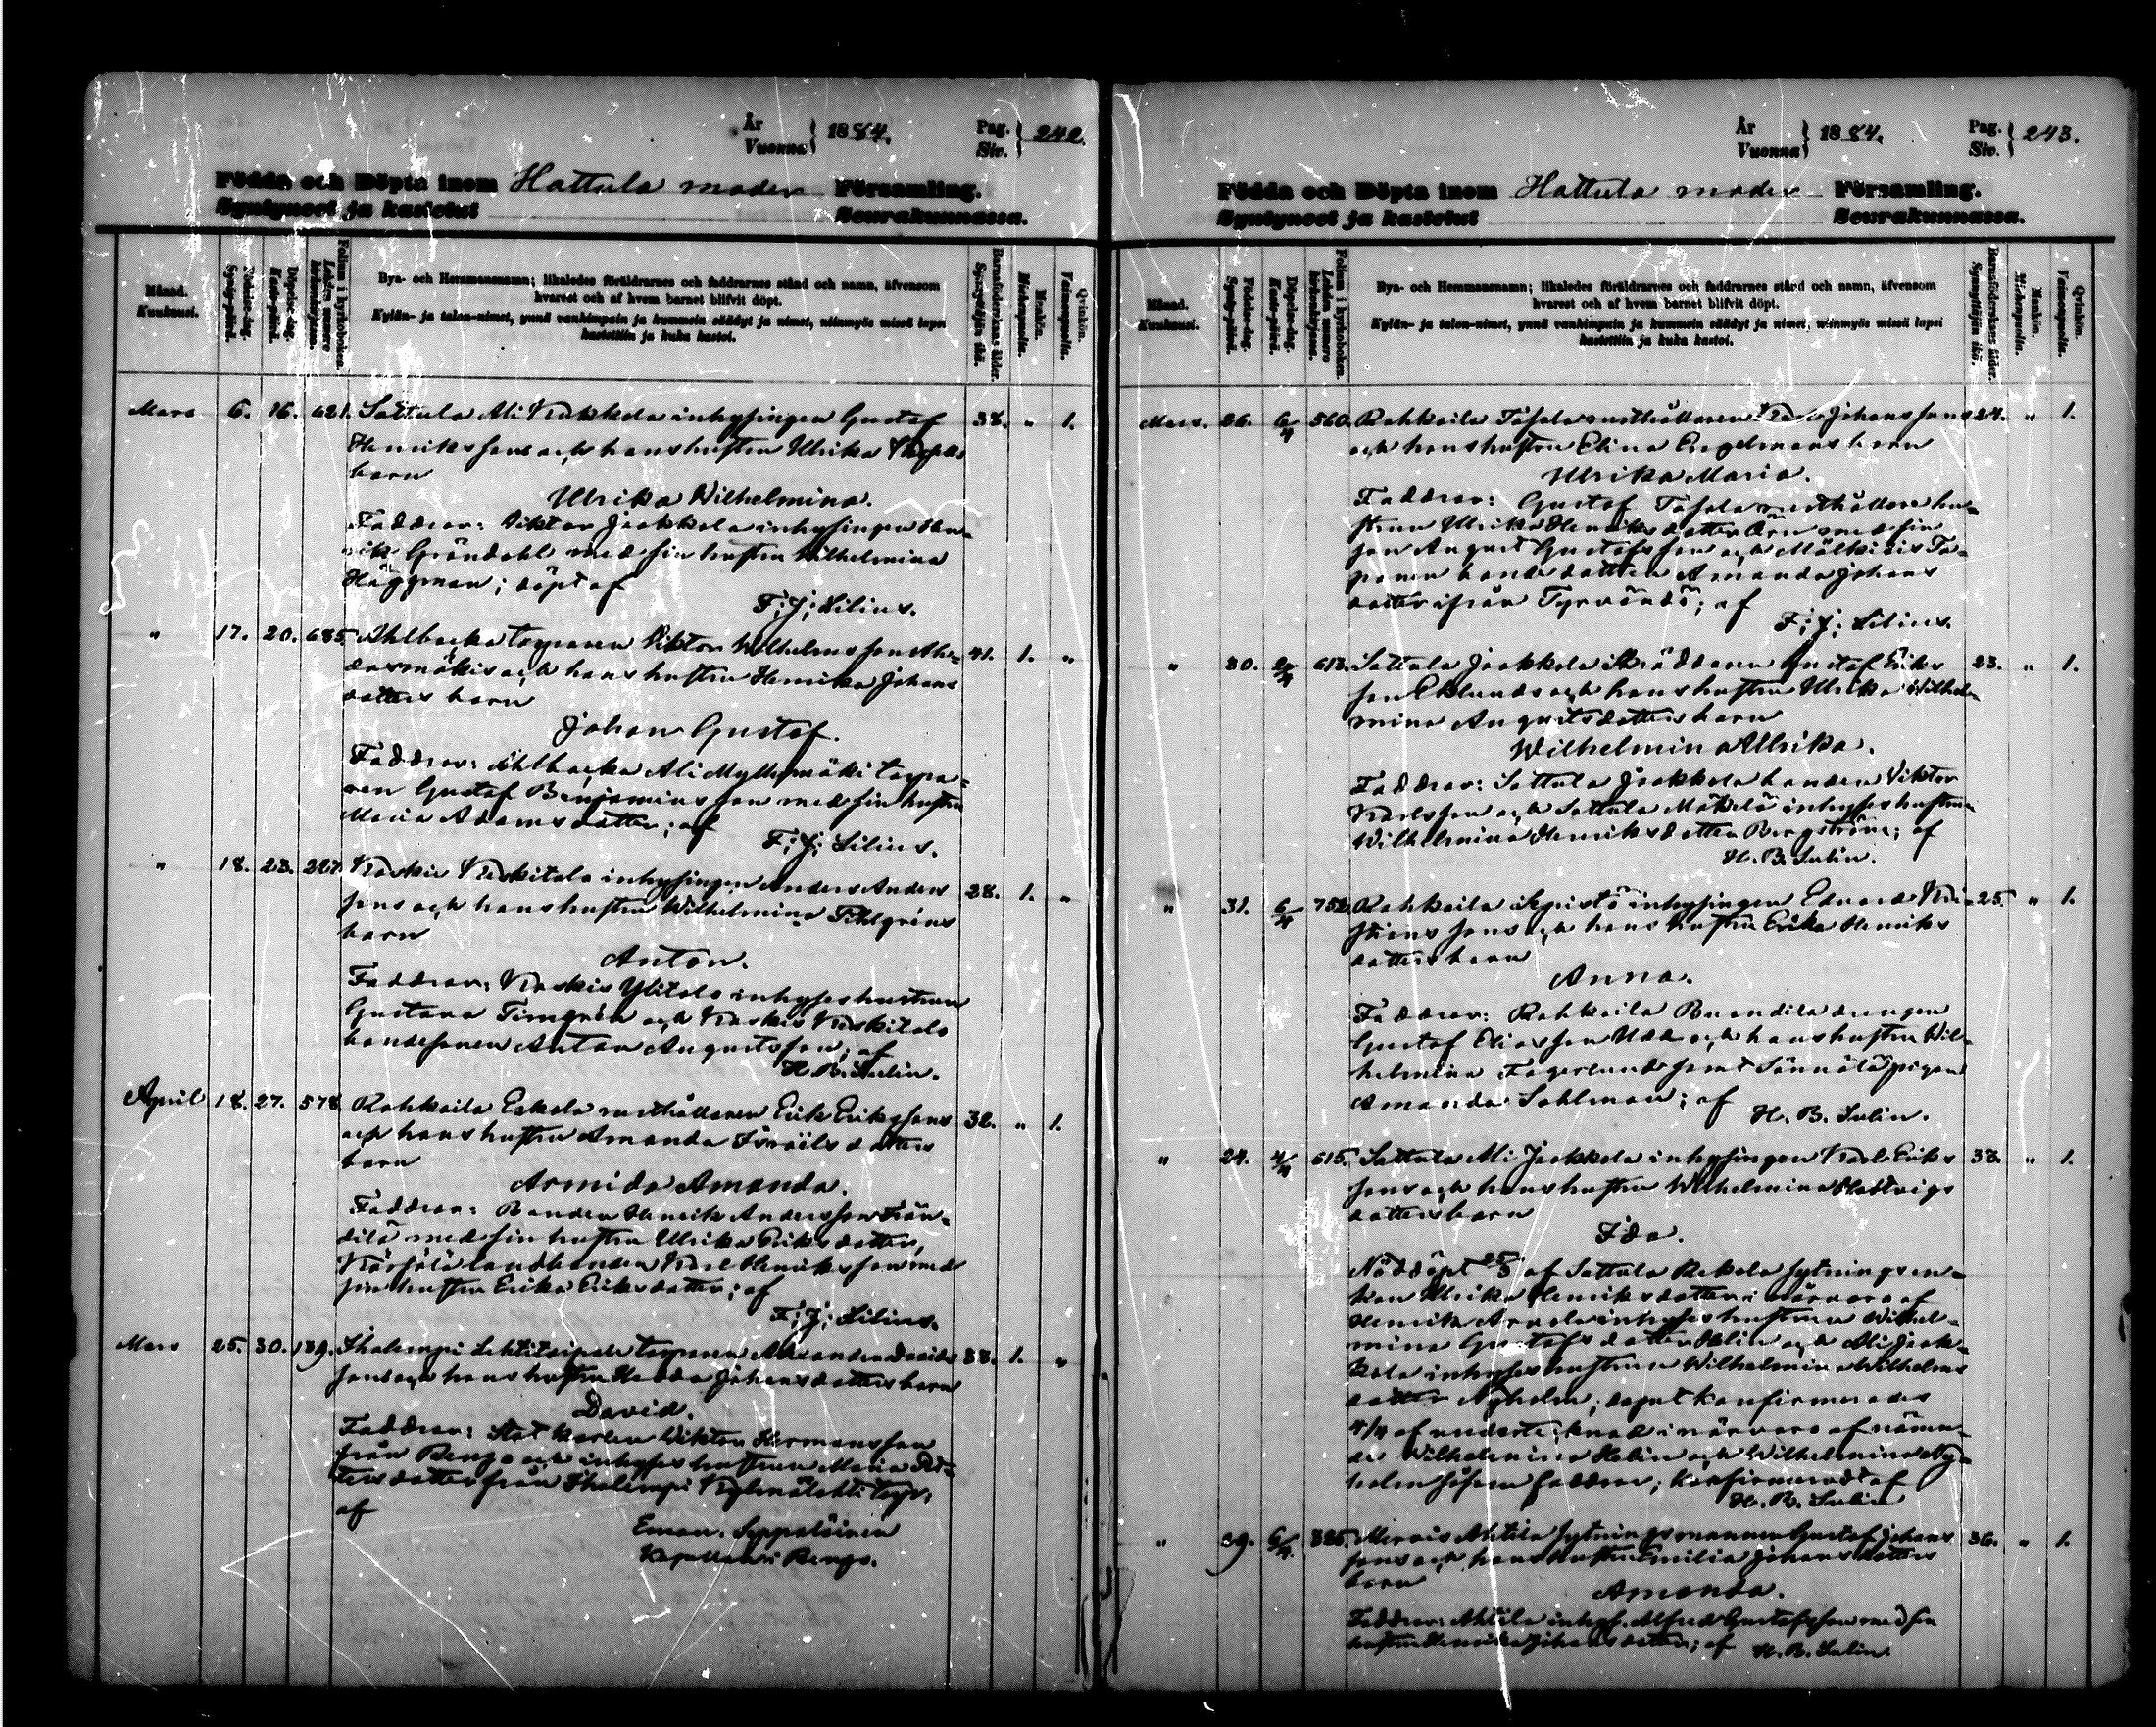 År
Vuonna } 1884.
Pag.
Siv. } 242.
Födda och Döpta inom Hattula moder Församling.
Syntyneet ja kastetut Seurakunnassa.
Månad.
Kuukausi.
Födelse-dag.
Synty-päivä.
Döpelse-dag.
Kaste-päivä.
Folium i kyrkoboken.
Lehden numero kirkonkirjassa.
Bya- och Hemmansnamn; likaledes föräldrarnes och faddrarnes stånd och namn, äfvensom
hvarest och af hvem barnet blifvit döpt.
Kylän- ja talon-nimet, ynnä vanhimpain ja kummein säädyt ja nimet, niinmyös missä lapsi
kastettiin ja kuka kastoi.
Barnaföderskans ålder.
Synnyttäjän ikä.
Mankön.
Miehenpuolia.
Qvinkön.
Vaimonpuolia.
Mars 6. 16. 621. Sattula Ali inhysingen Gustaf 38. " 1.
Henriks sons och hans hustru Ulrika
barn
Ulrika Wilhelmina.
Faddrar: Viktor Jaakkola inhysingen Hen-
rik Gröndahl med sin hustru Wilhelmina
Häggman; döpt af
F. J. Lilius.
" 17. 20. 685. Ahlbacka torparen Viktor Wilhelms son
och hans hustru Henrika Johans 41. 1. "
dotters barn
Johan Gustaf.
Faddrar: Ahlbacka Ali Myllymäki torpa-
ren Gustaf Benjamins son med sin hustru
Maria Adamsdotter; af
F. J. Lilius.
" 18. 23. 327. Keskitalo inhysingen Anders Anders 28. 1. "
sons och hans hustru Wilhelmina
barn
Anton.
Faddrar: Ylitalo inhyses hustrun
Gustava och Keskitalo
bondesonen Anton Augustsson; af
H. B. Sulin.
April 18. 27. 578. Rahkoila Eskola rusthållaren Erik Eriks sons 32. " 1.
och hans hustru Amanda Israels dotters
barn
Armida Amanda.
Faddrar: Bonden Henrik Andersson
med sin hustru Ulrika Eriksdotter,
landbonden Karl Henriks son med
sin hustru Erika Eriksdotter; af
F. J. Lilius.
Mars 25. 30. 139. Ihalempi torparen Alexander Davids 33. 1. "
sons och hans hustru Hedda Johans dotters barn
David.
Faddrar: Statkarlen Viktor Hermansson
från Rengo och inhyses hustrun Maria
dotter från Ihalempi torp;
af
Eman. Seppäläinen
Kapellan i Rengo.
År
Vuonna } 1884.
Pag.
Siv. } 243.
Födda och Döpta inom Hattula moder Församling.
Syntyneet ja kastetut Seurakunnassa.
Månad.
Kuukausi.
Födelse-dag.
Synty-päivä.
Döpelse-dag.
Kaste-päivä.
Folium i kyrkoboken.
Lehden numero kirkonkirjassa.
Bya- och Hemmansnamn; likaledes föräldrarnes och faddrarnes stånd och namn, äfvensom
hvarest och af hvem barnet blifvit döpt.
Kylän- ja talon-nimet, ynnä vanhimpain ja kummein säädyt ja nimet, niinmyös missä lapsi
kastettiin ja kuka kastoi.
Barnaföderskans ålder.
Synnyttäjän ikä.
Mankön.
Miehenpuolia.
Qvinkön.
Vaimonpuolia.
Mars. 26. 6/4 560. Rahkoila rusthållaren Karl Johans sons 24. " 1.
och hans hustru Elina Engelmans barn
Ulrika Maria.
Faddrar: Gustaf rusthållare hu-
strun Ulrika Henriksdotter med sin
son August Gustafsson och
bonde dotter Amanda Johans
dotter ifrån Tyrvändö; af
F. J. Lilius.
" 30. 2/4 613. Sattula Jaakkola skräddaren Gustaf Eriks 23. " 1.
son Eklunds och hans hustru Ulrika Wilhel-
mina Augustsdotters barn
Wilhelmina Ulrika.
Faddrar: Sattula Jaakkola bonden Viktor
Karlsson och Sattula Mäkelä inhyses hustrun
Wilhelmina Henriksdotter Bergström; af
H. B. Sulin.
" 31. 6/4 752. Rahkoila Sepistö inhysingen Edvard Kri- 25. " 1.
stians sons och hans hustru Erika Henriks
dotters barn
Anna.
Faddrar: Rahkoila drengen
Gustaf Eliasson Udd och hans hustru Wil-
helmina Fagerlund samt pigan
Amanda Sahlman; af
H. B. Sulin.
" 24. 4/4 615. Sattula Ali Jaakkola inhysingen Karl Eriks 33. " 1.
sons och hans hustru Wilhelmina
dotters barn
Ida.
Nöddöpt af Sattula Rekola sytningsen-
kan Ulrika Henriksdotter i närvaro af
Henrik inhyses hustrun Wilhel-
mina Gustafsdotter Helin och Ali Jaak-
kola inhyses hustrun Wilhelmina Wilhelms
dotter Nyholm; dopet konfirmerades
4/4 af undertecknad i närvaro af nämn-
de Wilhelmina Helin och Wilhelmina Ny-
holm såsom faddrar; konfirmeradt af
H. B. Sulin
" 29. 6/4. 325. Merois Ahtila sytningsmannen Gustaf Johans 36. " 1.
sons och hans hustru Emilia Johans dotters
barn
Amanda.
Faddrar: Ahtila inhys. Alfred Gustafsson med sin
hustru Henrika Johansdotter; af H. B. Sulin.